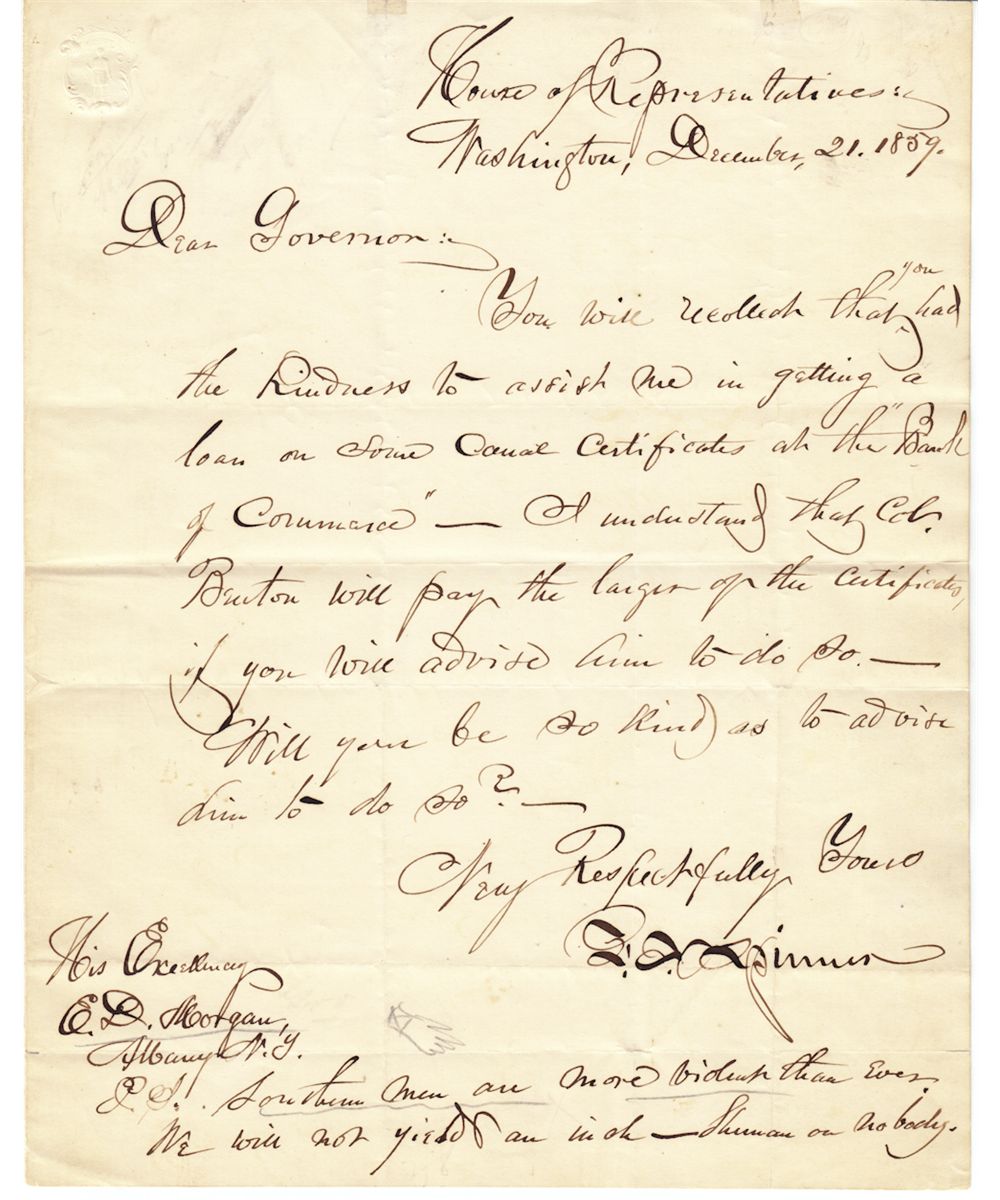 House of Representatives:
Washington, December, 21. 1859.
Dear Governor:
You will recollect that you had
the kindness to assist me in getting a
loan on some Canal Certificates at the "Bank
of Commerce" — I understand that Col.
Benton will pay the larger of the Certificates,
if you will advise him to do so. —
Will you be so kind as to advise
him to do so? —
Very Respectfully Yours
F. E. Spinner
His Excellency
E. D. Morgan,
Albany N. Y.
P. S. Southern men are more violent than ever.
We will not yield an inch — Sherman or nobody.